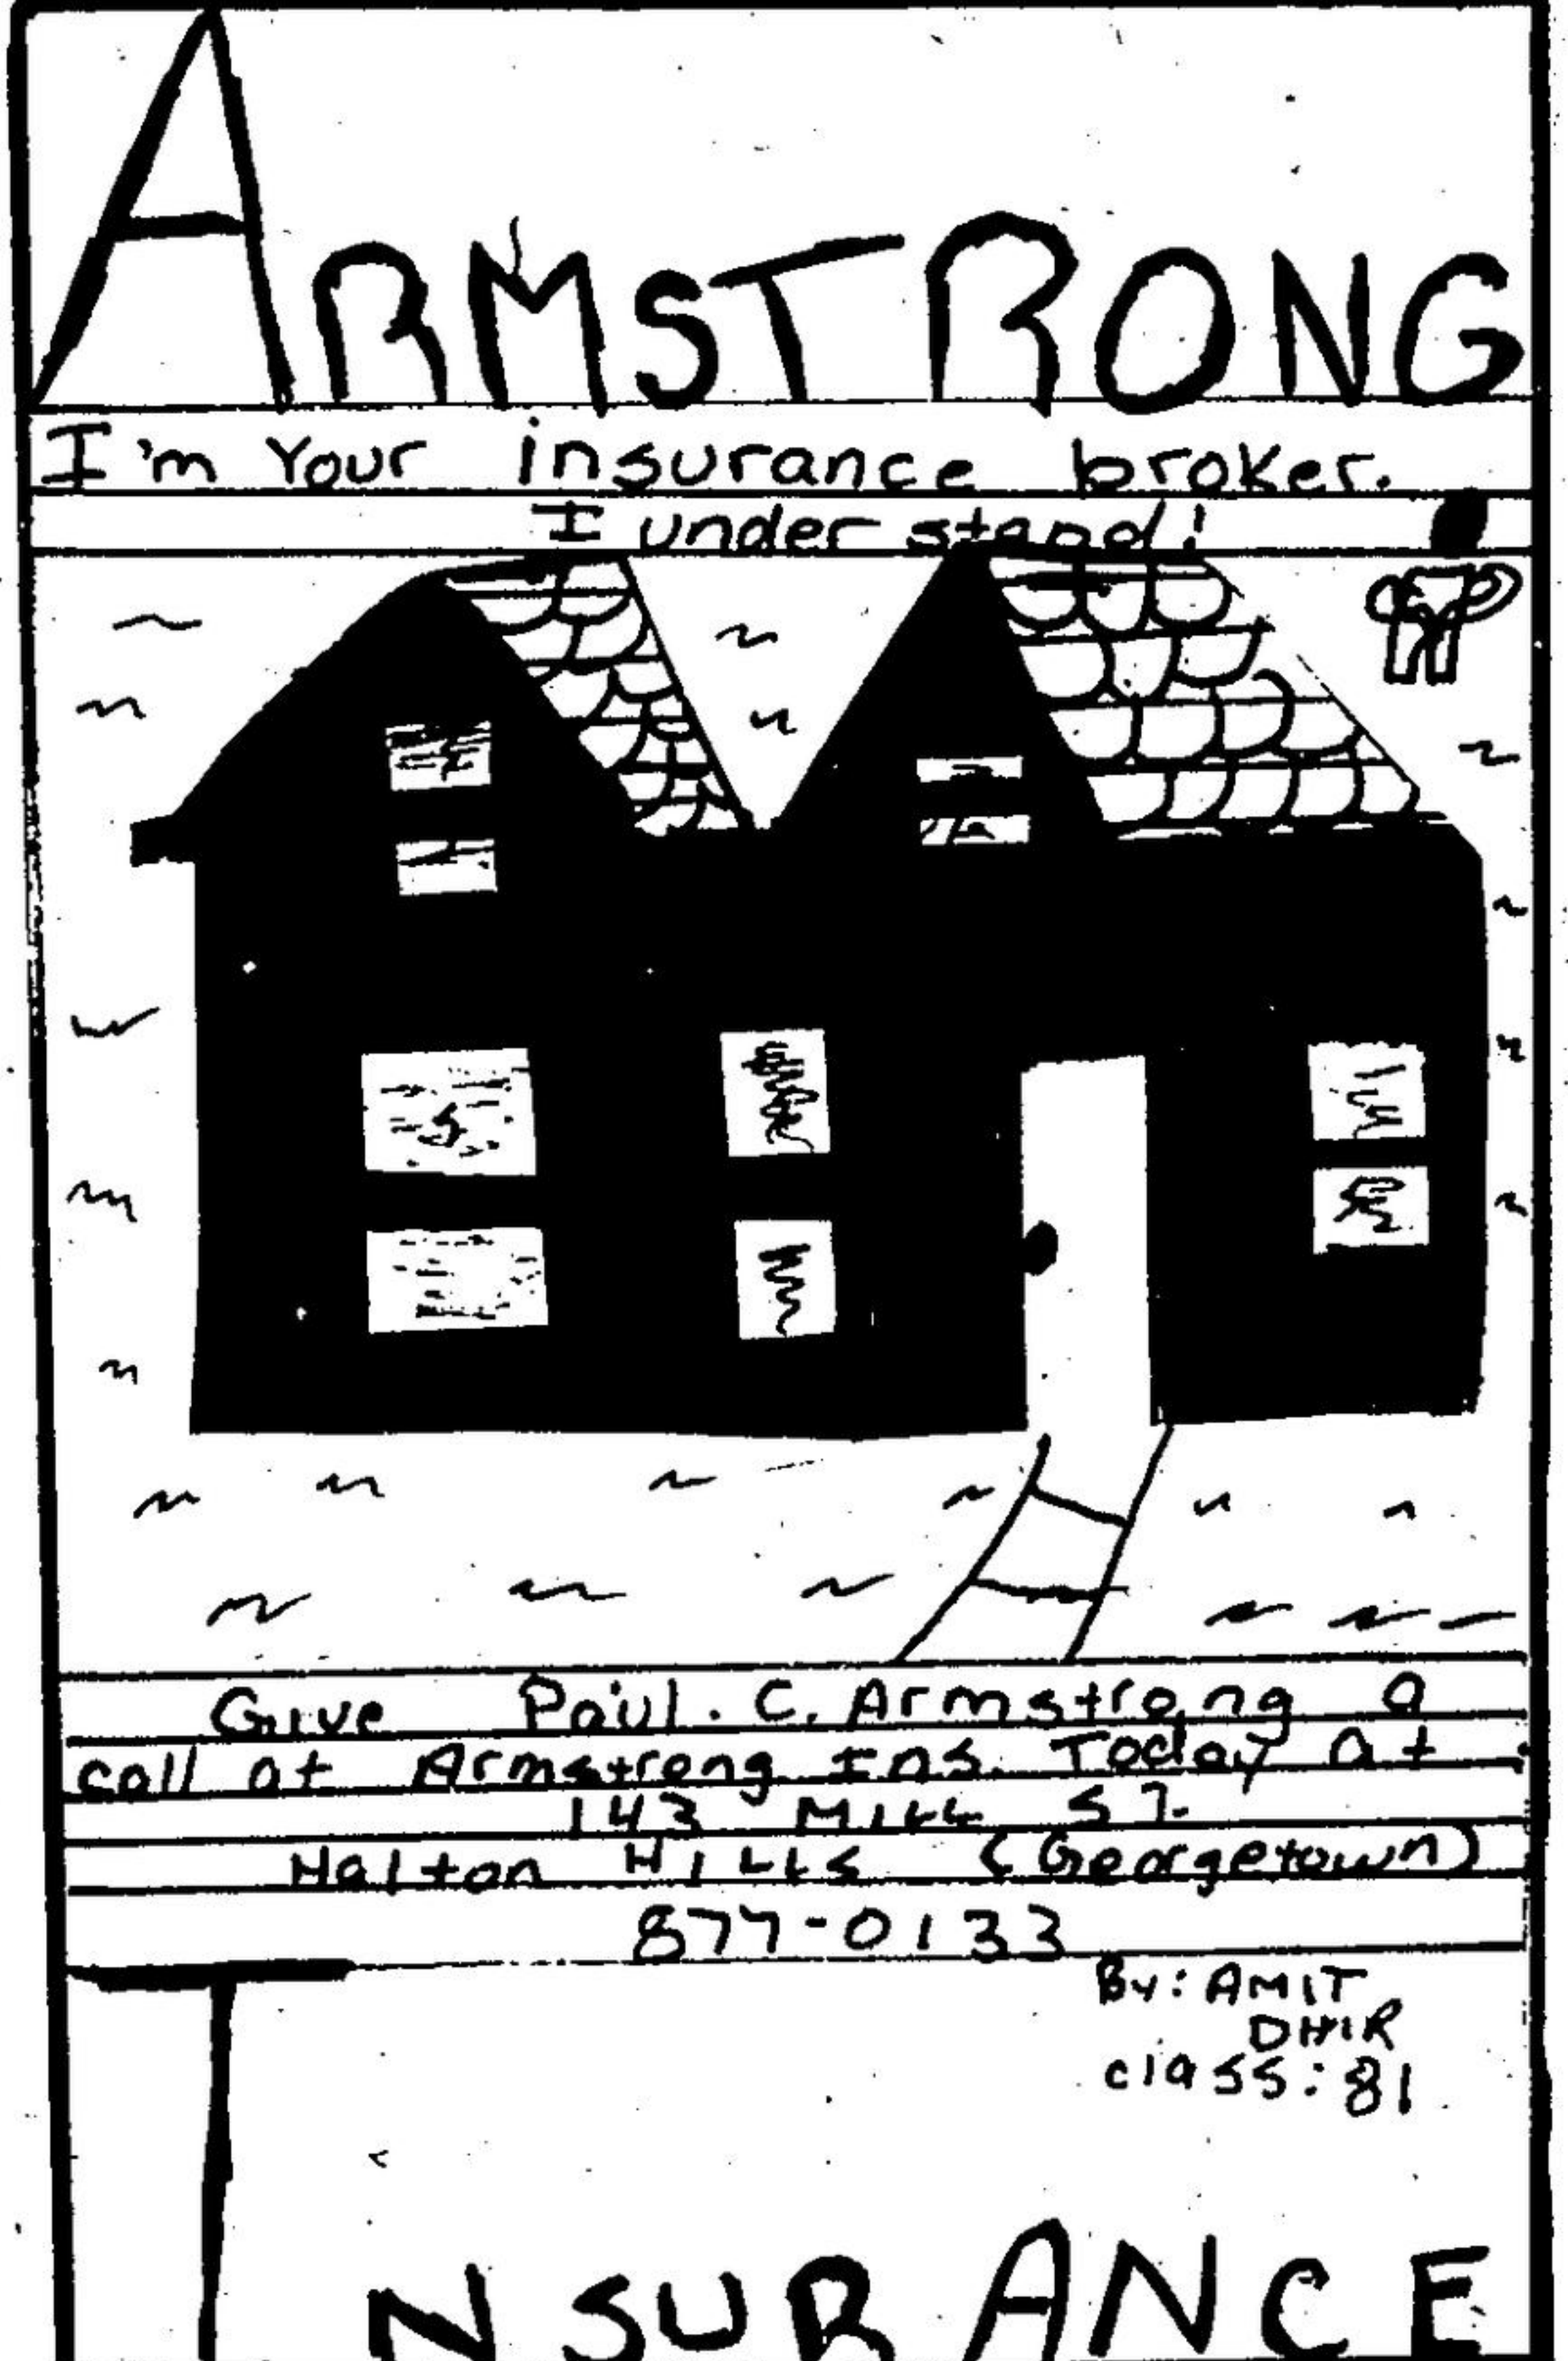 ARMSTRONG
I'm Your insurance broker.
I understand!
Give Paul. C. Armstrong a
call at Armstrong Ins. Today at
143 MILL ST.
Halton HILLS (Georgetown)
877-0133
By: AMIT
DHIR
class: 81
INSURANCE